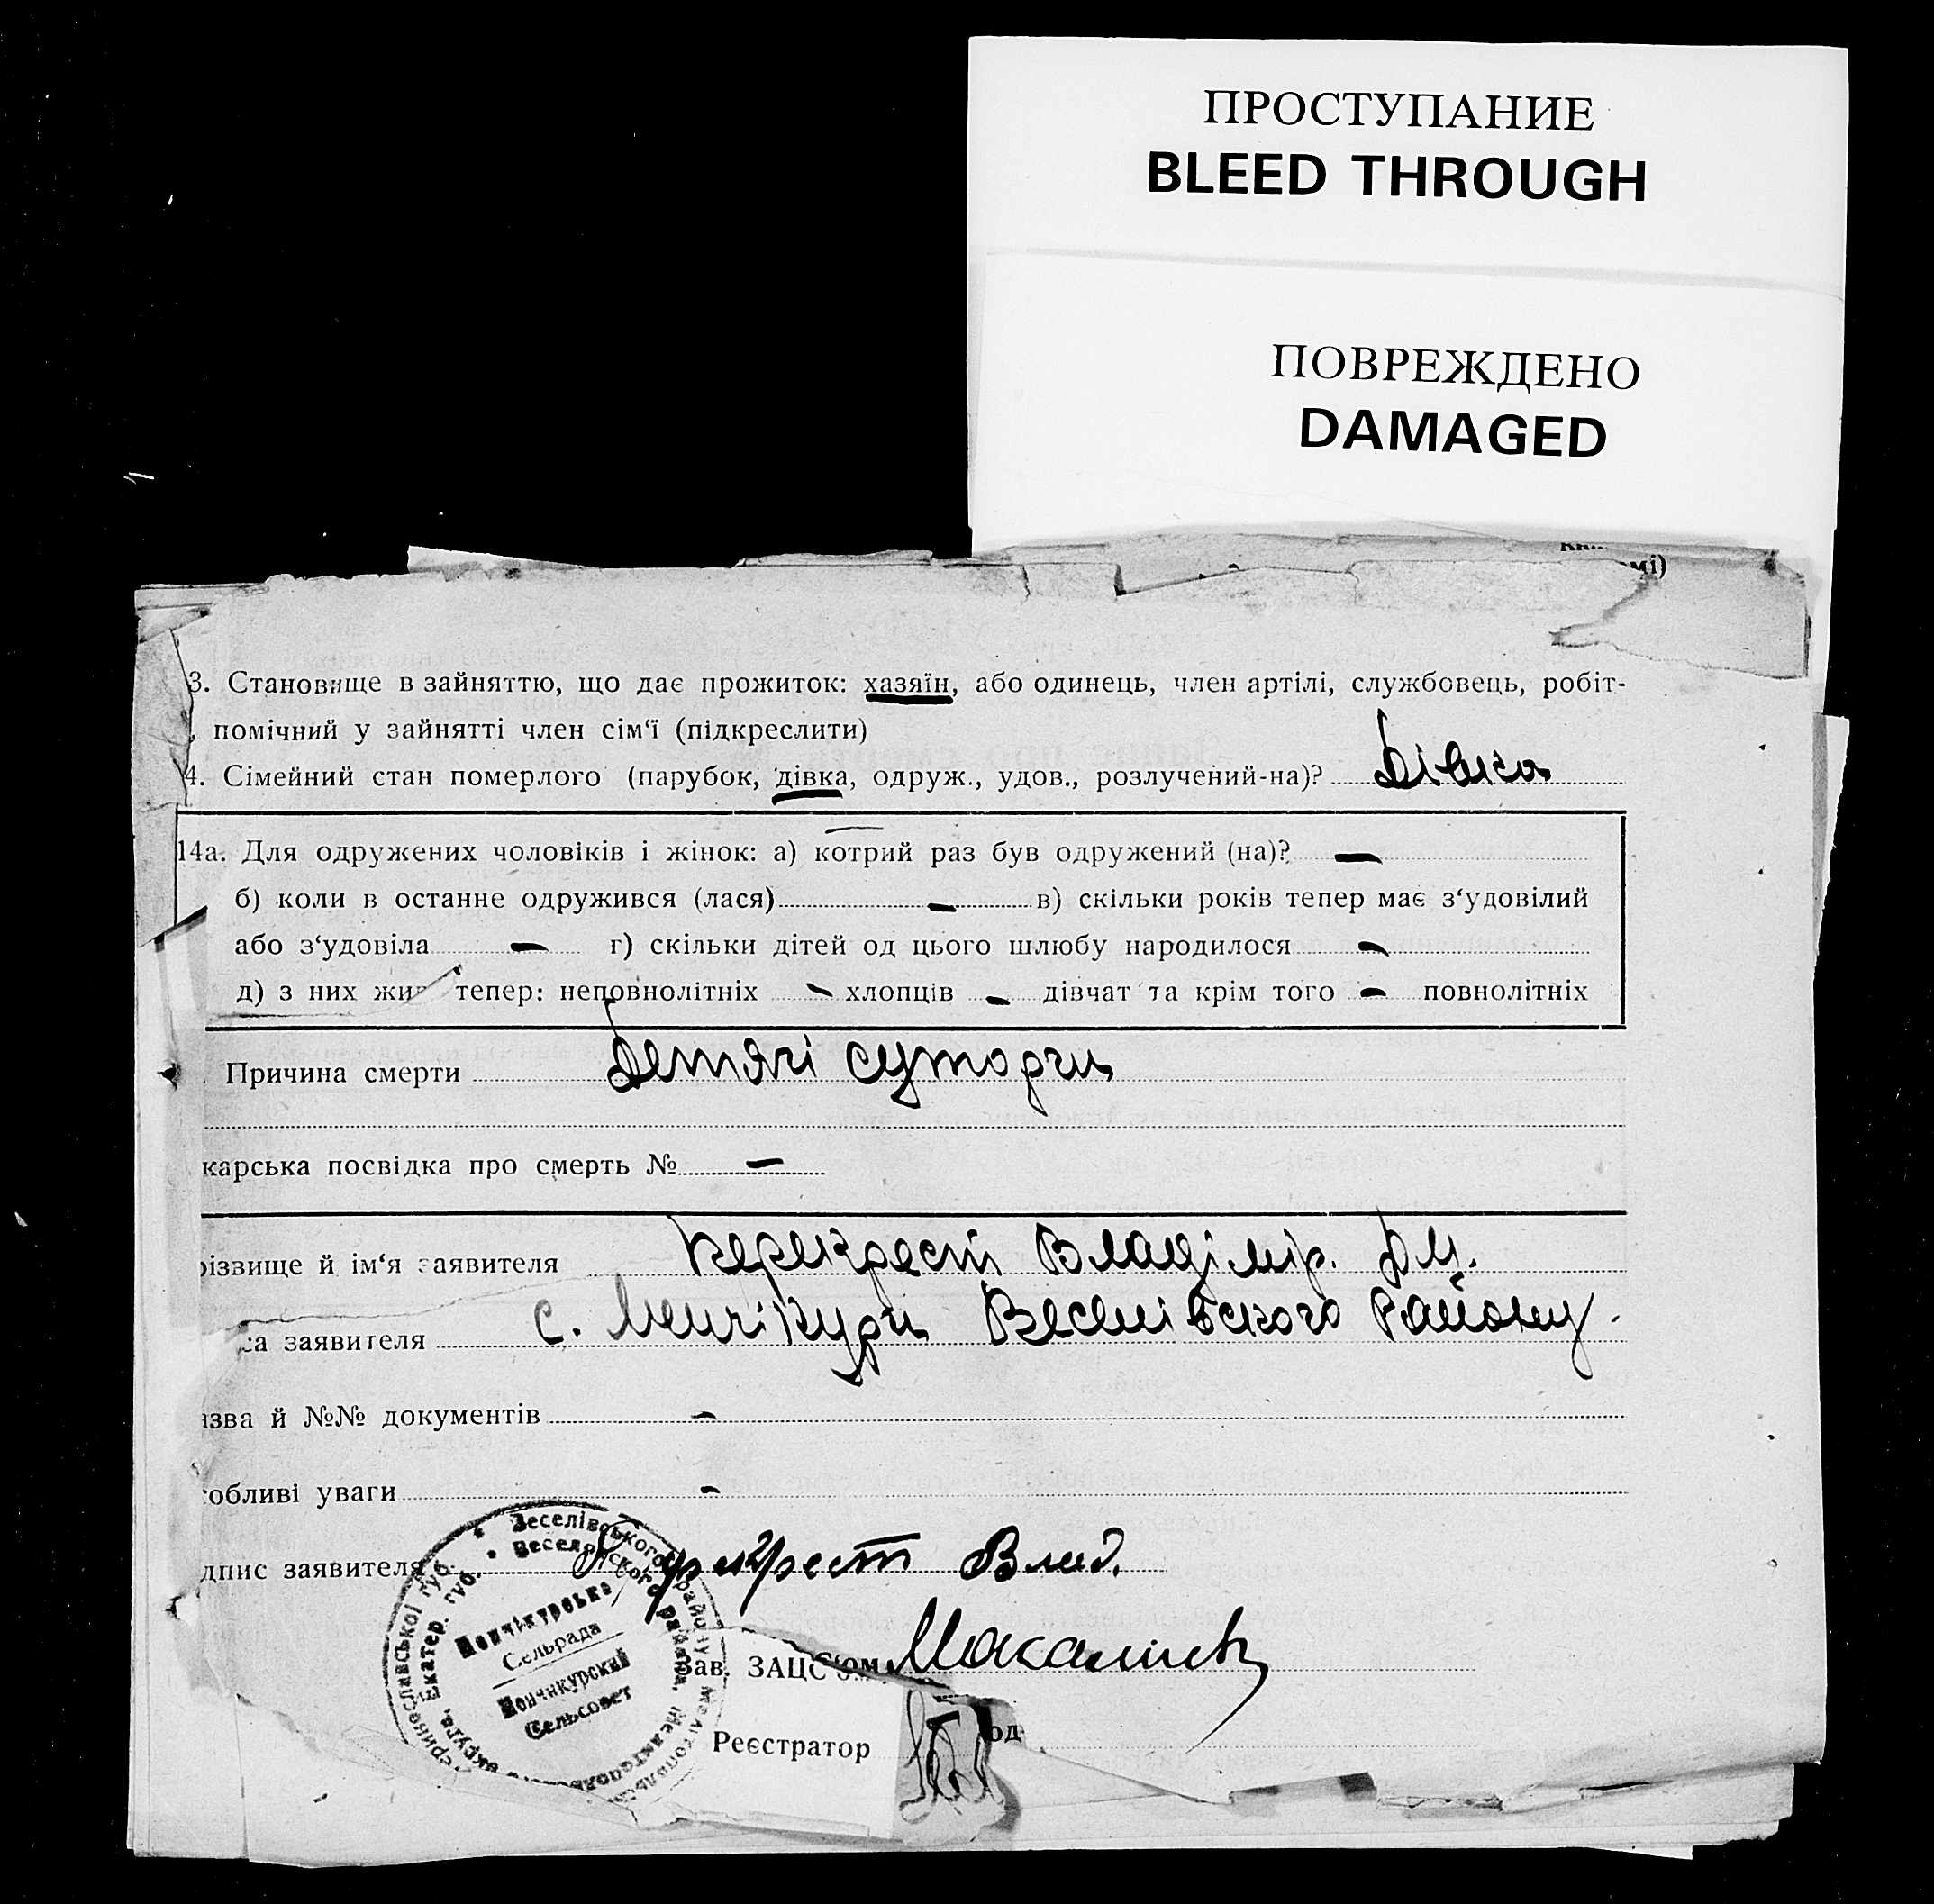 ПРОСТУПАНИЕ
BLEED THROUGH
ПОВРЕЖДЕНО
DAMAGED
омі)
3. Становище в зайняттю, що дає прожиток: хазяїн, або одинець, член артілі, службовець, робіт-
, помічний у зайнятті член сім‘ї (підкреслити)
4. Сімейний стан померлого (парубок, дівка, одруж., удов., розлучений-на)? Дівка
14а. Для одружених чоловіків і жінок: а) котрий раз був одружений (на)? —
б) коли в останне одружився (лася) — в) скільки років тепер має з‘удовілий
або з‘удовіла — г) скільки дітей од цього шлюбу народилося —
д) з них жив тепер: неповнолітніх — хлопців — дівчат та крім того — повнолітніх
Причина смерти Детячі суторги
карська посвідка про смерть № —
різвище й ім‘я заявителя Перекрест Владімір. Дм.
са заявителя с. Менчікури Веселівского Району.
азва й №№ документів —
собливі уваги —
дпис заявителя Перекрест Влад.
Зав. ЗАЦС‘ом
Реєстратор
Веселівського району Мелітопольс
Веселовского района, Мелитопольс
округа, Екатер. губ.
Менчікурська
Сельрада
Менчикурский
Сельсовет